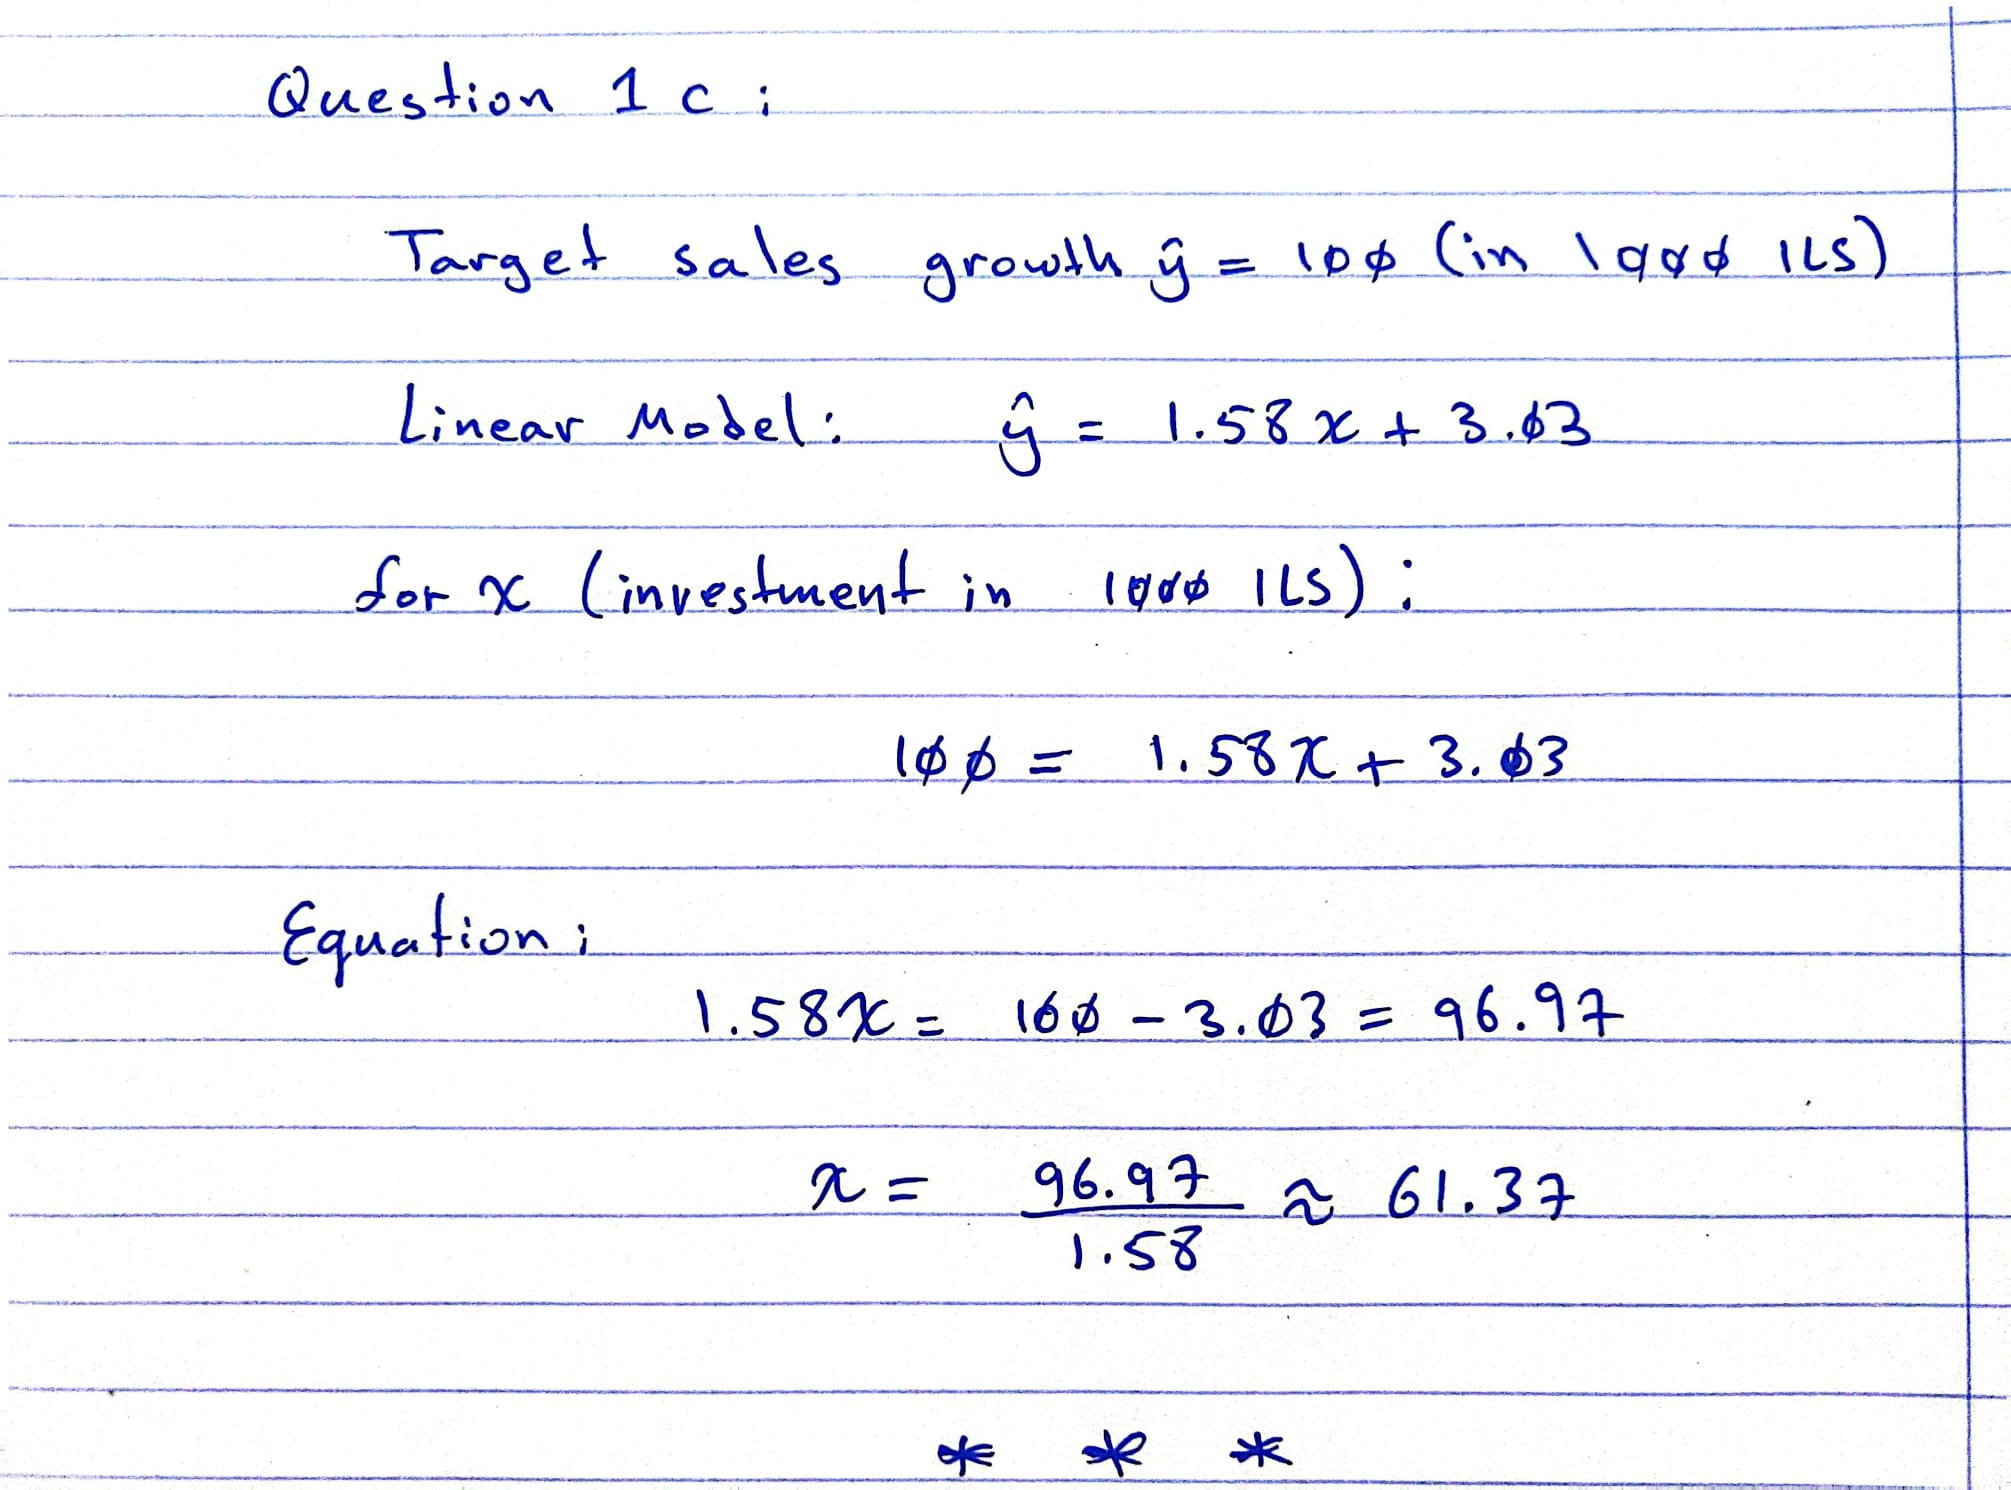 Question 1 c :
Target sales growth ŷ = 100 (in 1000 ILS)
Linear Model: ŷ = 1.58 x + 3.03
for x (investment in 1000 ILS) :
100 = 1.58 x + 3.03
Equation :
1.58 x = 100 - 3.03 = 96.97
x = 96.97 / 1.58 ≈ 61.37
* * *